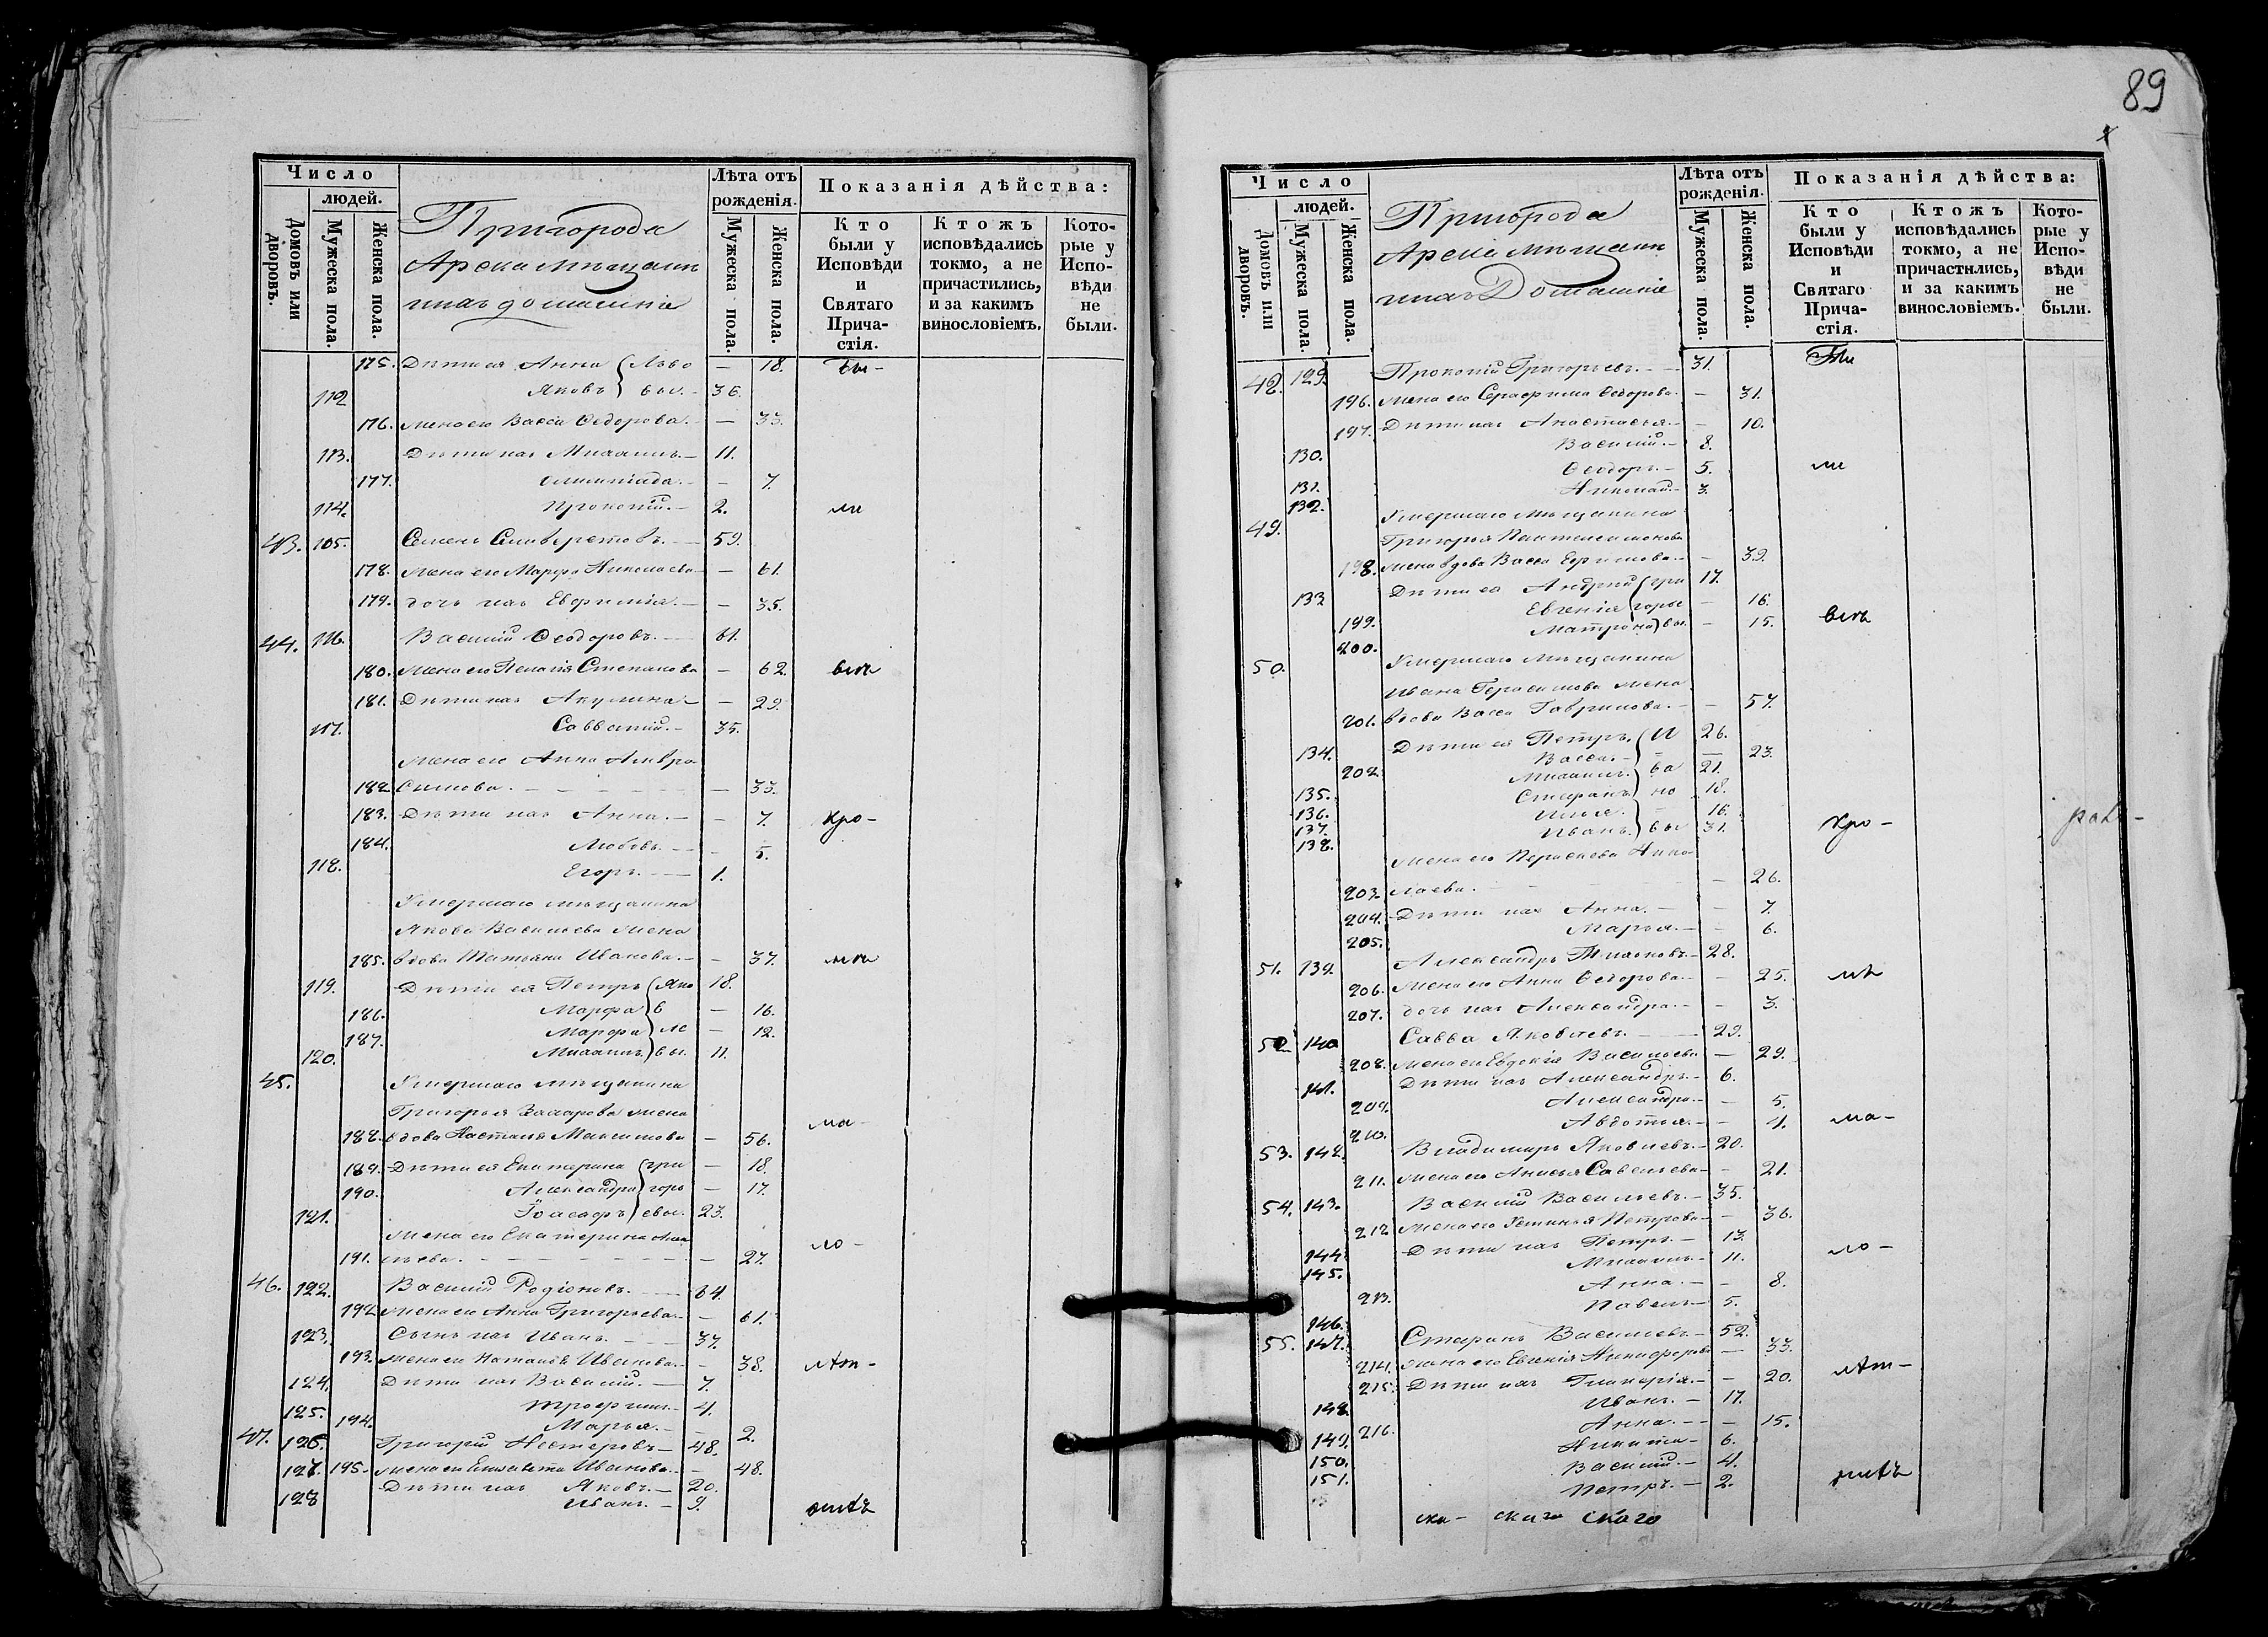 89
Число
людей.
Домовъ или дворовъ.
Мужеска пола.
Женска пола.
Пригорода
Арска мѣщанъ
ихъ домашніе
Лѣта отъ рожденія.
Мужеска пола.
Женска пола.
Показанія дѣйства:
Кто были у Исповѣди и Святаго Прича-стія.
Ктожъ исповѣдались токмо, а не причастились, и за какимъ винословіемъ.
Кото-рые у Испо-вѣди не были.
175. Дѣти ея Анна (Льво — 18. Бы-
112 Яковъ) вы. - 36.
176. жена его Васса Ѳедорова. — 33.
113. Дѣти ихъ Михаилъ. — 11.
177. Олимпіада. — 7.
114. Прокопій. — 2. ли
43. 105. Семенъ Селиверстовъ. — 59.
178. жена его Марфа Николаева — 61.
179. дочь ихъ Евфимія. — 35.
44. 116. Василій Ѳеодоровъ. — 61.
180. жена его Пелагія Степанова — 62. всѣ
181. Дѣти ихъ Акулина — 29.
117. Савватій. — 35.
жена его Анна Амвро
182. симова. — 33.
183. Дѣти ихъ Анна. — 7. кро-
184. Любовь. — 5.
118. Егоръ. — 1.
Умершаго мѣщанина
Якова Васильева жена
185. вдова Татьяна Иванова. — 37.
119. Дѣти ея Петръ (Яко 18.
186. Марфа в — 16.
187. Марфа ле — 12.
120. Михаилъ) вы. 11.
45. Умершаго мѣщанина
Григорья Захарова жена
ма-
188. вдова Настасья Максимова — 56.
189. Дѣти ея Екатерина (гри — 18.
190. Александра горь — 17.
121. Іоасафъ) евы. 23.
жена его Екатерина
ло-
191. — 27.
46. 122. Василій Родіоновъ. — 64.
192 жена его Анна Григорьева. — 61.
123. Сынъ ихъ Иванъ. — 37.
193. жена его Наталья Иванова. — 38. лѣт-
124. Дѣти ихъ Василій. — 7.
125. Трофимъ. — 4.
194. Марья. — 2.
47. 126. Григорій Нестеровъ — 48.
127. 195. жена его Елизавета Иванова. — 48.
Дѣти ихъ Яковъ. — 20.
128 Иванъ. — 9. нихъ
Число
людей.
Домовъ или дворовъ.
Мужеска пола.
Женска пола.
Пригорода
Арска мѣщанъ
ихъ Домашніе
Лѣта отъ рожденія.
Мужеска пола.
Женска пола.
Показанія дѣйства:
Кто были у Исповѣди и Святаго Прича-стія.
Ктожъ исповѣдались токмо, а не причастились, и за какимъ винословіемъ.
Кото-рые у Испо-вѣди не были.
48. 129. Прокопій Григорьевъ. — 31. Бы
196. жена его Серафима Ѳедорова. — 31.
197. Дѣти ихъ Анастасья. — 10.
130. Василій. — 8.
131. Ѳеодоръ. — 5. ли
132. Николай. — 3.
49. Умершаго мѣщанина
Григорья Пантелеимонова
198. жена вдова Васса Ефимова. — 39.
133 Дѣти ея Андрей (гри 17.
199. Евгенія горье — 16. всѣ
200. Матрона) вы. — 15.
50. Умершаго мѣщанина
Ивана Герасимова жена
201. вдова Васса Гаврилова. — 57.
134. Дѣти ея Петръ. (И 26.
202. Васса. — 23.
135. Михаилъ. ва 21.
136. Стефанъ. но 18.
137. Илья. — 16.
138. Иванъ.) вы 31. кро-
жена его Парасковья Нико
203. лаева. — 26.
204. Дѣти ихъ Анна. — 7.
205. Марья. — 6.
51. 139. Александръ — 28.
206. жена его Анна Ѳедорова. — 25.
207. дочь ихъ Александра. — 3.
52 140 Савва Яковлевъ. — 29.
208. жена его Евдокія Васильева — 29.
141. Дѣти ихъ Александръ. — 6.
209. Александра. — 5.
210. Авдотья. — 4. ма-
53. 142. Владимиръ Яковлевъ. — 20.
211. жена его Анисья Савельева — 21.
54. 143. Василій Васильевъ. — 35.
212 жена его Устинья Петрова — 36.
144. Дѣти ихъ Петръ. — 13. ло-
145. Михаилъ — 11.
213. Анна. — 8.
146. Павелъ — 5.
55. 147. Стефанъ Васильевъ. — 52.
214. жена его Евгенія Никифорова — 33.
215. Дѣти ихъ Гликерія. — 20. лѣт-
148. Иванъ. — 17.
216. Анна. — 15.
149. Никита — 6.
150. Василій. — 4.
151. Петръ. — 2. нихъ
ска- скаго скаго